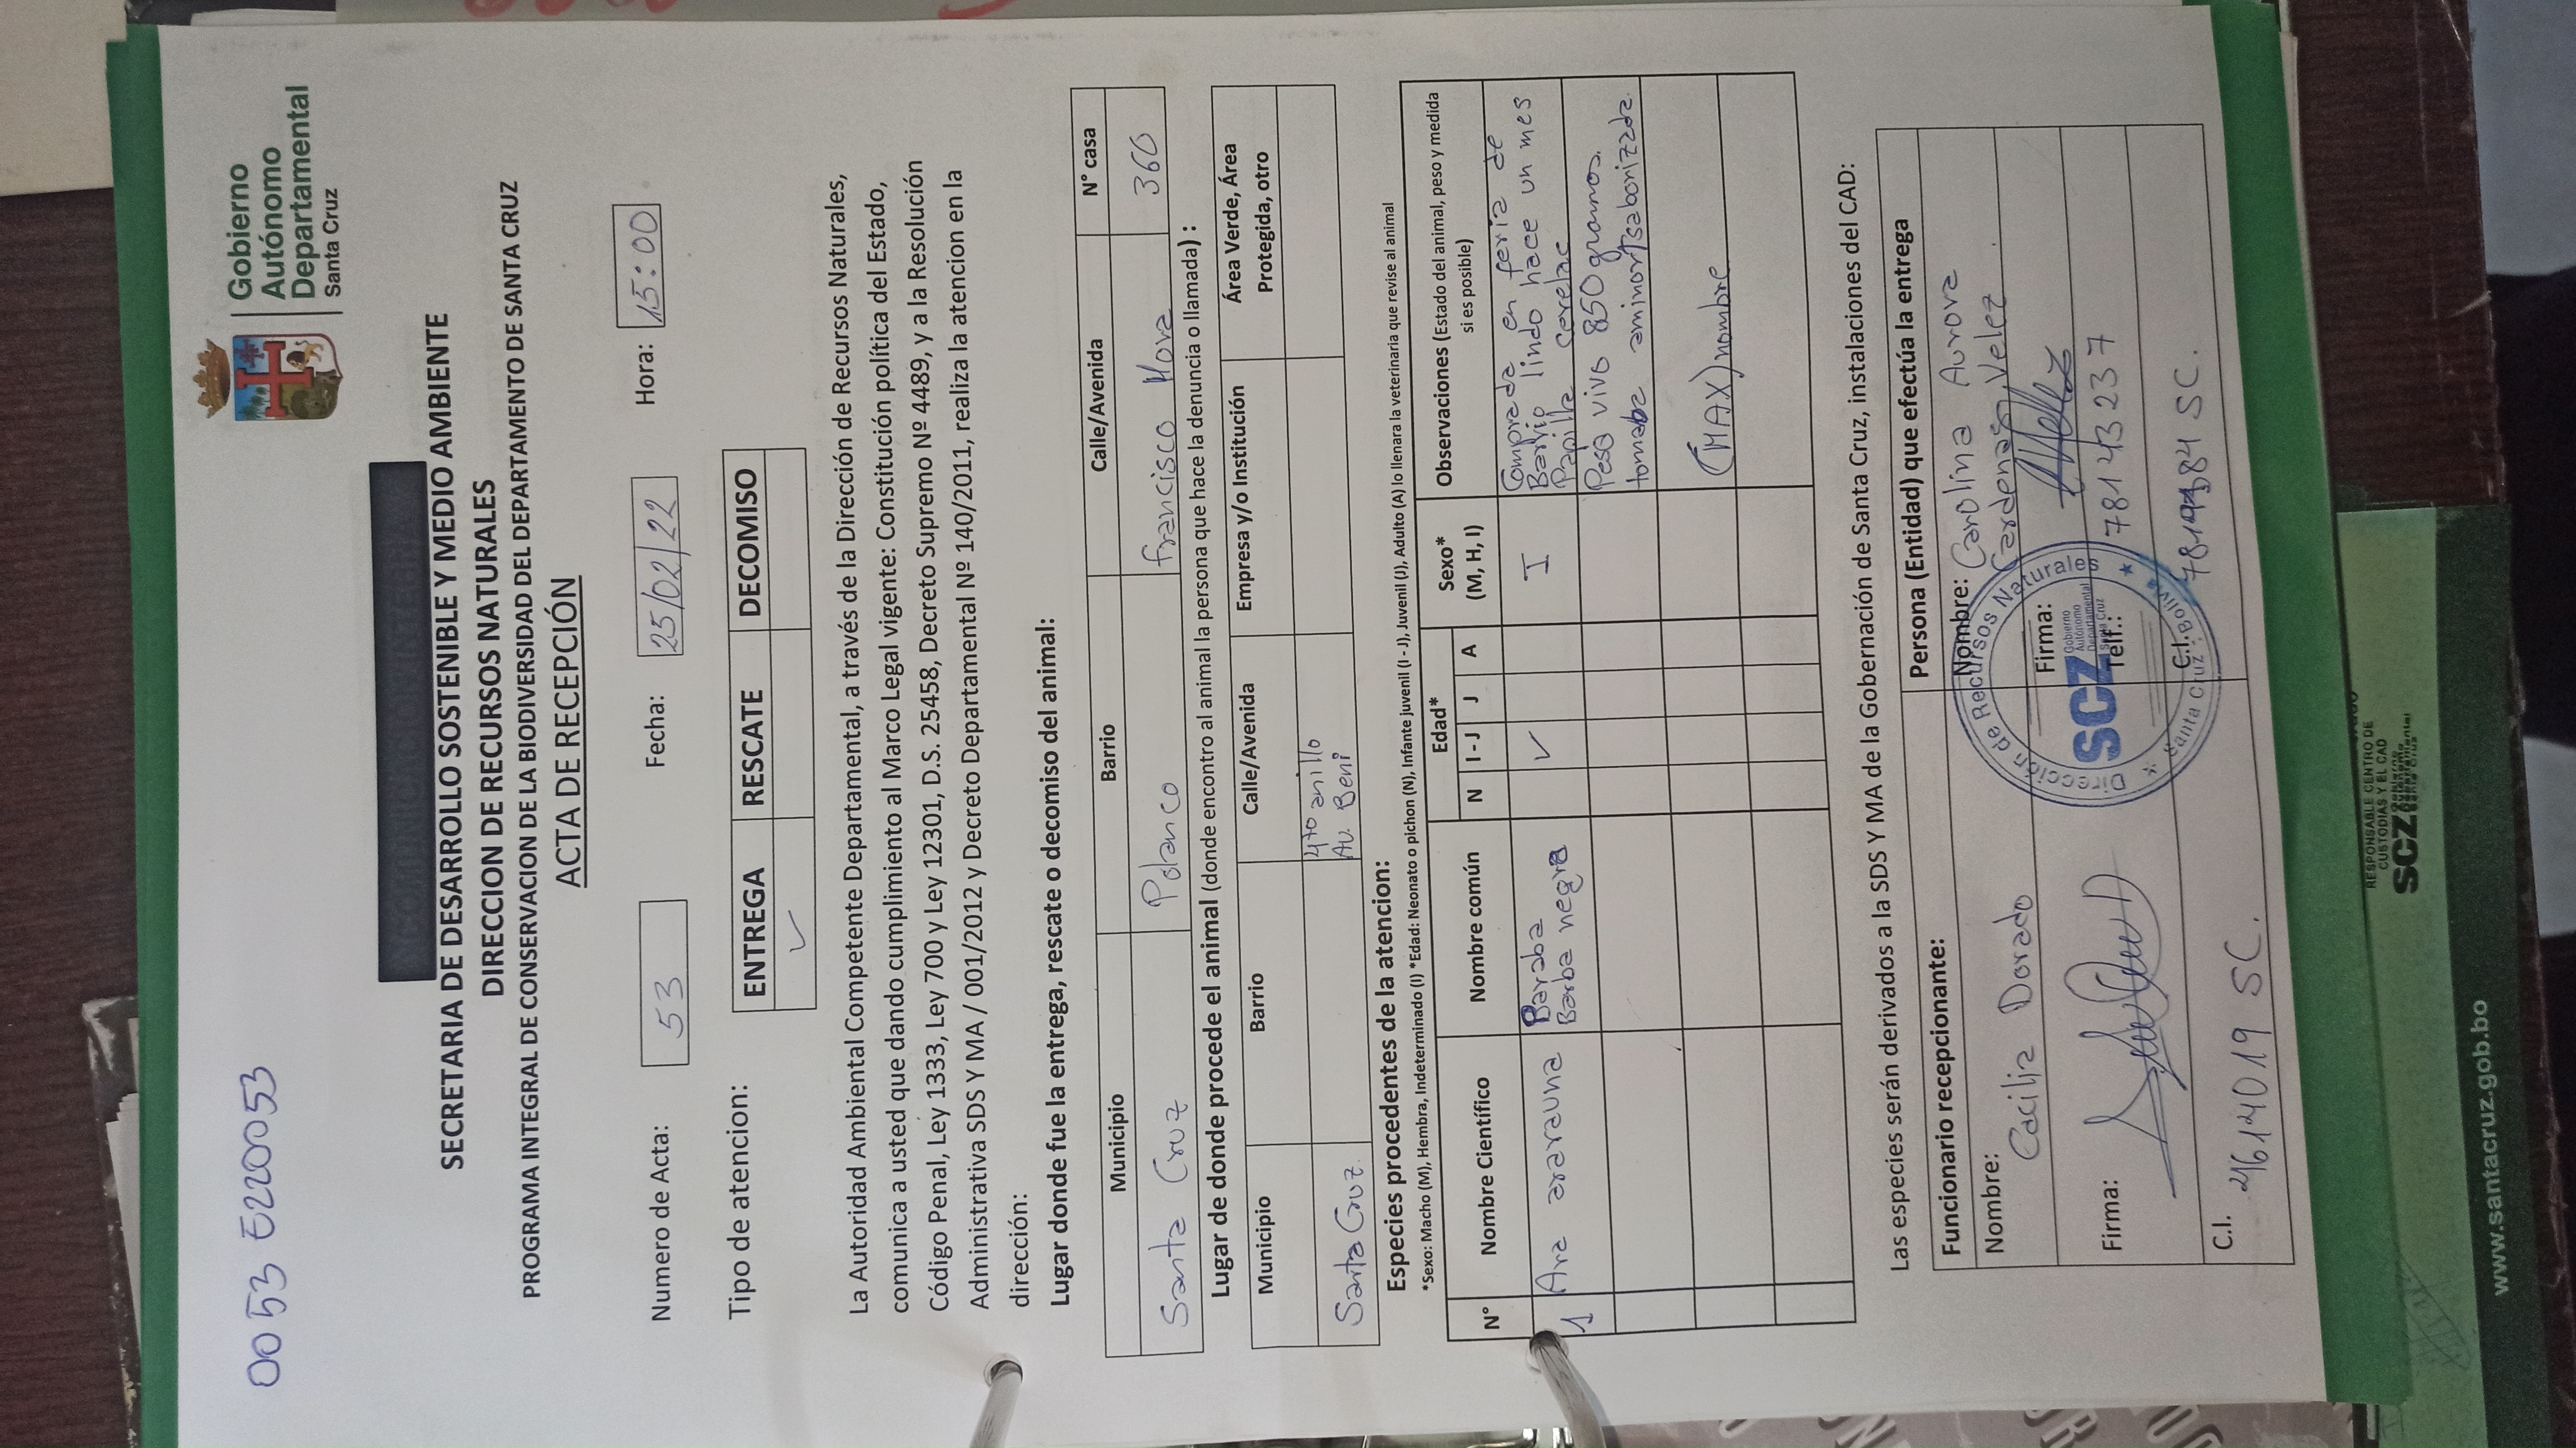 0053 E220053
Gobierno
Autónomo
Departamental
Santa Cruz
SECRETARIA DE DESARROLLO SOSTENIBLE Y MEDIO AMBIENTE
DIRECCION DE RECURSOS NATURALES
PROGRAMA INTEGRAL DE CONSERVACION DE LA BIODIVERSIDAD DEL DEPARTAMENTO DE SANTA CRUZ
ACTA DE RECEPCIÓN
Numero de Acta: 53 Fecha: 25/02/22 Hora: 15:00
Tipo de atencion: ENTREGA RESCATE DECOMISO
✓
La Autoridad Ambiental Competente Departamental, a través de la Dirección de Recursos Naturales,
comunica a usted que dando cumplimiento al Marco Legal vigente: Constitución política del Estado,
Código Penal, Ley 1333, Ley 700 y Ley 12301, D.S. 25458, Decreto Supremo Nº 4489, y a la Resolución
Administrativa SDS Y MA / 001/2012 y Decreto Departamental Nº 140/2011, realiza la atencion en la
dirección:
Lugar donde fue la entrega, rescate o decomiso del animal:
Municipio Barrio Calle/Avenida N° casa
Santa Cruz Polanco Francisco Mora 360
Lugar de donde procede el animal (donde encontro al animal la persona que hace la denuncia o llamada) :
Municipio Barrio Calle/Avenida Empresa y/o Institución Área Verde, Área
Protegida, otro
Santa Cruz 4to anillo
Av. Beni
Especies procedentes de la atencion:
*Sexo: Macho (M), Hembra, Indeterminado (I) *Edad: Neonato o pichon (N), Infante juvenil (I - J), Juvenil (J), Adulto (A) lo llenara la veterinaria que revise al animal
N° Nombre Científico Nombre común Edad* Sexo* Observaciones (Estado del animal, peso y medida
N I - J J A (M, H, I) si es posible)
1 Ara ararauna Paraba ✓ I Comprada en feria de
Barba negra Barrio lindo hace un mes
Papilla cerelac
Peso vivo 850 gramos.
tomaba saborizada.
(MAX) nombre
Las especies serán derivados a la SDS Y MA de la Gobernación de Santa Cruz, instalaciones del CAD:
Funcionario recepcionante: Persona (Entidad) que efectúa la entrega
Nombre: Cacilia Dorado Nombre: Carolina Aurora
Cardenas Velez
Firma: Firma:
Telf.: 78143237
C.I. 4614019 SC. C.I. SC.
Dirección de Recursos Naturales
SCZ Gobierno
Autónomo
Departamental
Santa Cruz
Santa Cruz - Bolivia
RESPONSABLE CENTRO DE
CUSTODIAS Y EL CAD
SCZ Gobierno
Autónomo
Departamental
Santa Cruz
www.santacruz.gob.bo